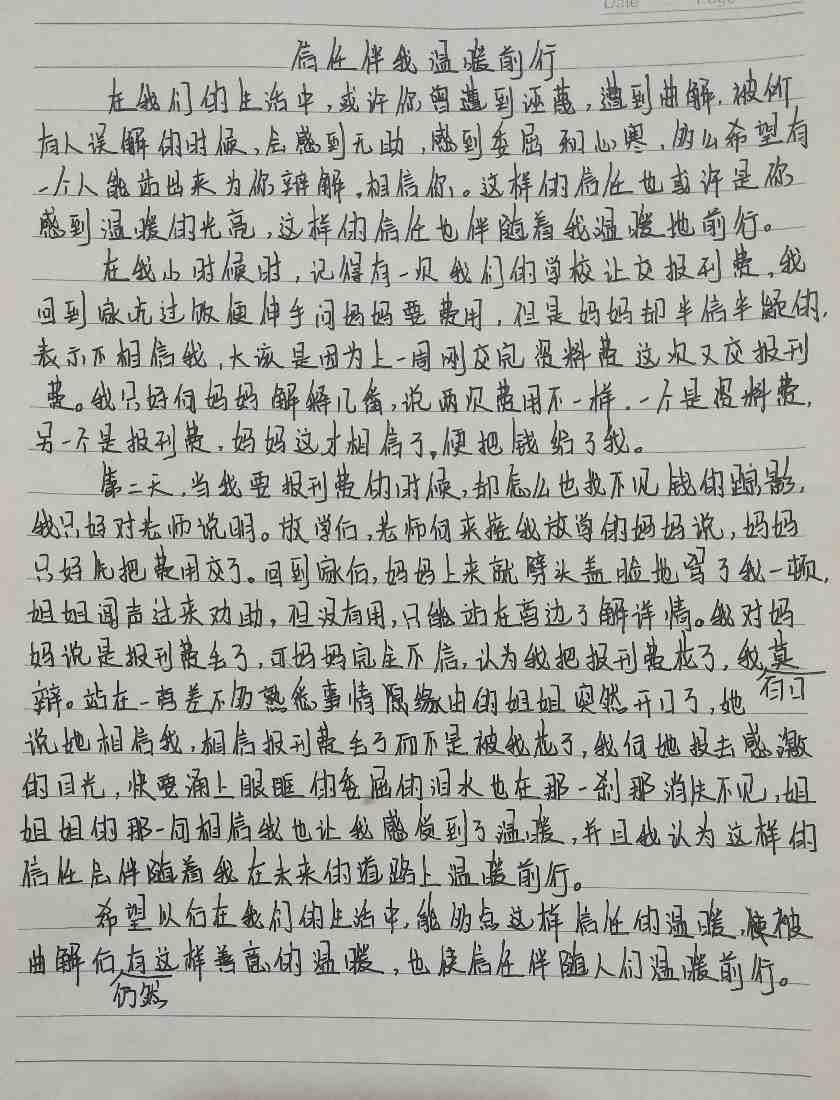 Date Page
信任伴我温暖前行
在我们的生活中,或许你曾遭到诬蔑,遭到曲解.被所
有人误解的时候,会感到无助,感到委屈和心寒,多么希望有
一个人能站出来为你辩解,相信你。这样的信任也或许是你
感到温暖的光亮,这样的信任也伴随着我温暖地前行。
在我小时候时,记得有一次我们的学校让交报刊费,我
回到家吃过饭便伸手问妈妈要费用,但是妈妈却半信半疑的,
表示不相信我,大该是因为上一周刚交完资料费这次又交报刊
费。我只好向妈妈解释几番,说两次费用不一样.一个是资料费,
另一个是报刊费,妈妈这才相信了,便把钱给了我。
第二天,当我要报刊费的时候,却怎么也找不见钱的踪影,
我只好对老师说明。放学后,老师向来接我放学的妈妈说,妈妈
只好先把费用交了。回到家后,妈妈上来就劈头盖脸地骂了我一顿,
姐姐闻声过来劝助,但没有用,只能站在旁边了解详情。我对妈
妈说是报刊费丢了,可妈妈完全不信,认为我把报刊费花了,我莫
有口
辩。站在一旁差不多熟悉事情原缘由的姐姐突然开口了,她
说她相信我,相信报刊费丢了而不是被我花了,我向她投去感激
的目光,快要涌上眼眶的委屈的泪水也在那一刹那消失不见,姐
姐姐的那一句相信我也让我感受到了温暖,并且我认为这样的
信任会伴随着我在未来的道路上温暖前行。
希望以后在我们的生活中,能多点这样信任的温暖,使被
曲解后有这样善意的温暖,也使信任伴随人们温暖前行。
仍然